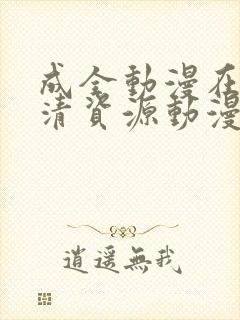 成全動漫在
清資源動漫
逍遥無我